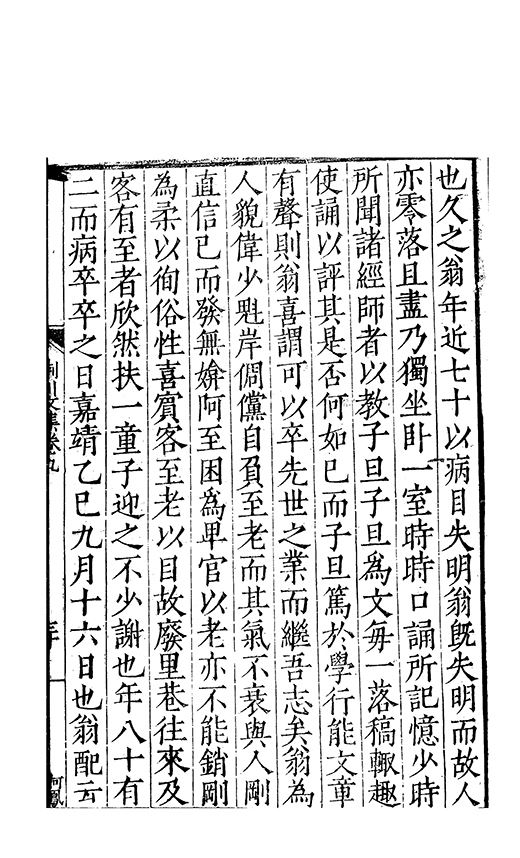 也久之翁年近七十以病目失明翁旣失明而故人
亦零落且盡乃獨坐卧一室時時口誦所記憶少時
所聞諸經師者以教子旦子旦爲文每一落稿輙趣
使誦以評其是否何如已而子旦篤於學行能文章
有聲則翁喜謂可以卒先世之業而繼吾志矣翁爲
人貌偉少魁岸倜儻自負至老而其氣不衰與人剛
直信已而發無媕阿至困爲卑官以老亦不能銷剛
為柔以徇俗性喜賓客至老以目故廢里巷往來及
客有至者欣然扶一童子迎之不少謝也年八十有
二而病卒卒之日嘉靖乙巳九月十六日也翁配云
荆川文集卷九
何鳳